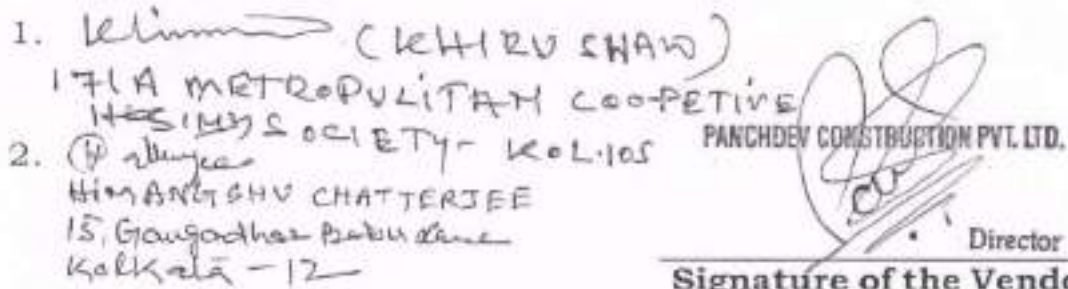 1. (KHIRU SHAW)
171A METROPULITAN COO-PETIVE
SOCIETY- KOL.105
2.
HIMANGSHU CHATTERJEE
15, Gangadhar Babu Lane
Kolkata - 12
PANCHDEV CONSTRUCTION PVT. LTD.
Director
Signature of the Vendo